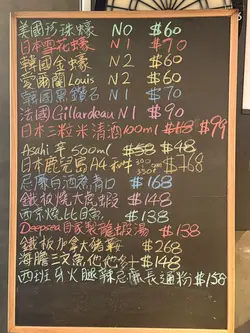 美國珍珠蠔 N0 $60
日本雪花蠔 N1 $70
韓國金蠔 N2 $60
愛爾蘭Louis N2 $60
韓國黑鑽石 N1 $70
法國Gillardeau N1 $90
日本三粒米清酒100ml $118 $99
Asahi 500ml $58 $48
日本鹿兒島A4和牛 $768
尼靡白酒煮青口 $168
鐵板燒大虎蝦 $148
西京燒比目魚 $138
Deepsea自家製龍蝦湯 $138
鐵板加拿大鵝肝 $268
海膽三文魚他他 $148
西班牙火腿辣忌廉長通粉 $158